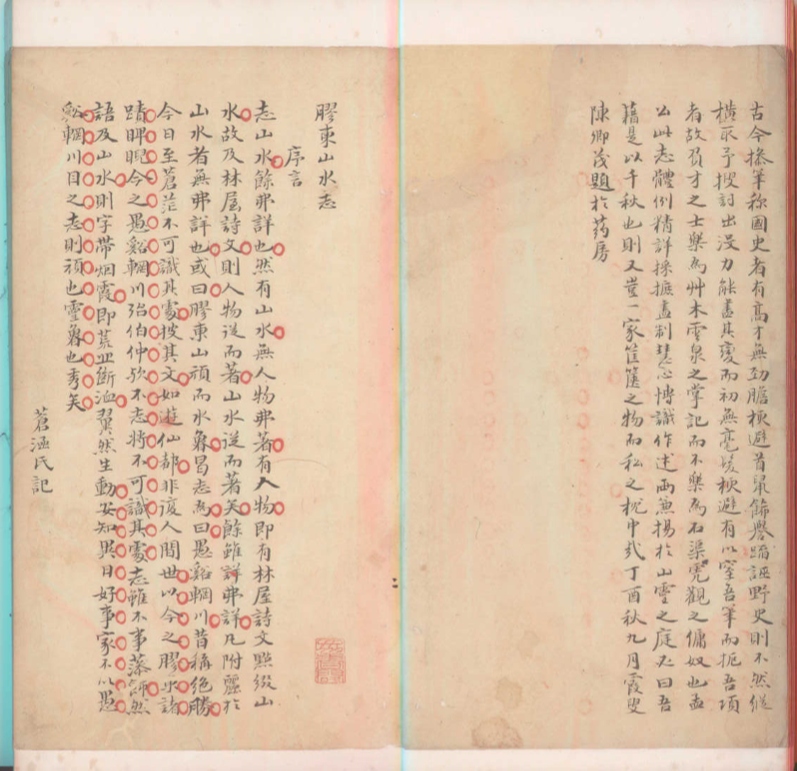 古今操筆稱國史者有高才無勁膽梗避首鼠飾譽蹈誣野史則不然縱
橫取予搜討出沒力能盡其變而初無毫髮梗避有以窒吾筆而扼吾項
者故負才之士樂為艸木雲泉之掌記而不樂為石渠 觀之傭奴也
公此志體例精詳採摭盡制 博識作述兩兼揚於山靈之庭 曰吾
藉是以千秋也則又豈一家筐篋之物而私之枕中 丁酉秋九月霞叟
陳卿茂題於药房
膠東山水志
序言
志山水餘弗詳也然有山水無人物弗著有人物即有林屋詩文點綴山
水故及林屋詩文則人物送而著山水送而著矣餘雖詳弗詳凡附麗於
山水者無弗詳也或曰膠東山頑而水 曷志為曰愚谿輞川昔稱絕勝
今日至蒼茫不可識其處披其文如遊仙都非復人間世以今之膠東諸
蹟睥睨今之愚谿輞川殆伯仲歟不志將不可識其處志雖不事藻飾然
語及山水則字帶烟霞即荒 斷 翼然生動安知異日好事家不以愚
谿輞川目之志則頑也靈 也秀矣
蒼 氏記